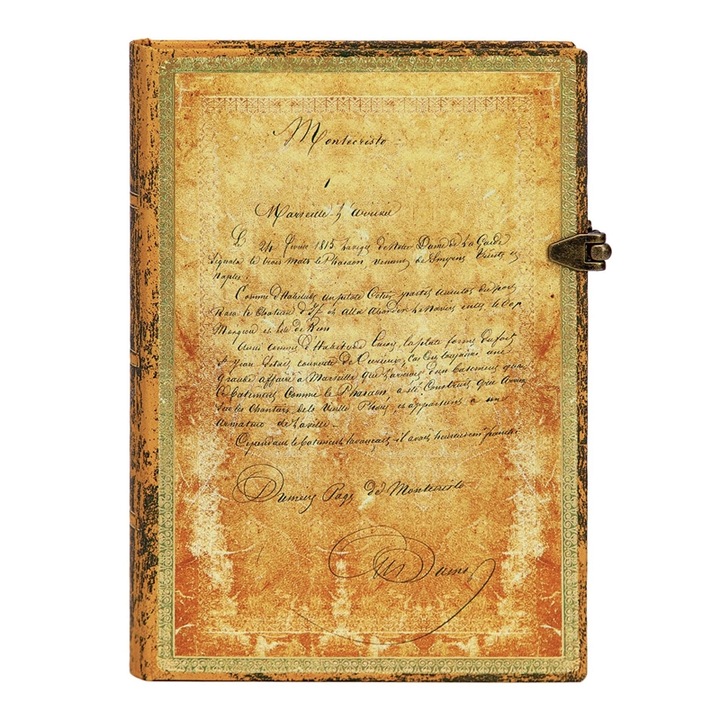 Montecristo
1
Marseille - L'arrivée
Le 24 février 1815 la vigie de Notre Dame de La Garde
Signala le trois mats le Pharaon venant de Smyrne Trieste et
Naples.
Comme d'habitude un pilote Cotier partit aussitot du port
Rasa le Chateau d'If et alla aborder le Navire entre le Cap
Morgiou et L'ile de Rion
Aussi comme d'habitude la plate forme du fort
St Jean s'etait couverte de Curieux; car c'est toujours une
Grande affaire à Marseille que l'arrivée d'un batiment quand
Ce batiment Comme le Pharaon, a été Construit, gréé
Sur les Chantiers de la Vieille Phocée, et appartient à un
Armateur de la ville.
Cependant le batiment s'avançait, il avait heureusement franchi
Page de Montecristo
Dumas